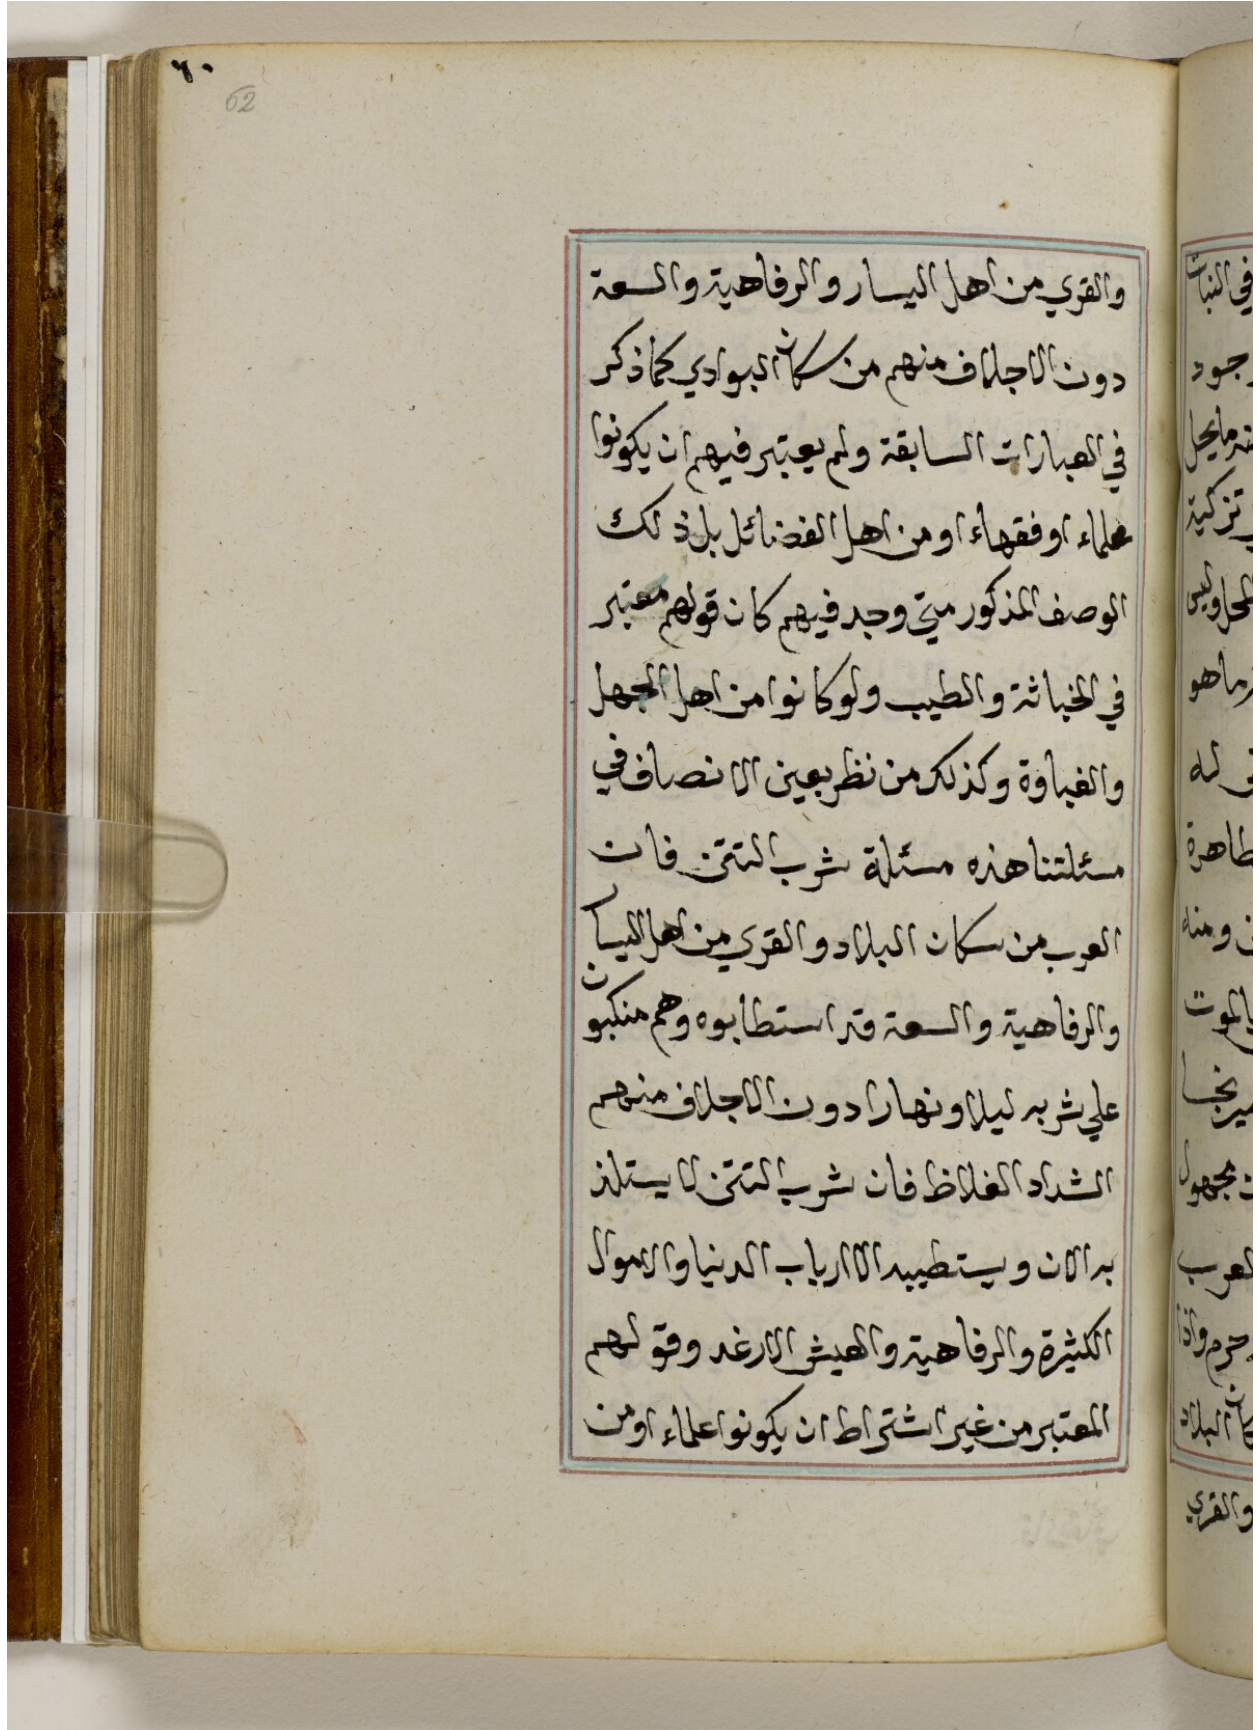 ٦٠
62
والقري من اهل اليسار والرفاهية والسعة
دون الاجلاف منهم من سكان البوادي كما ذكر
في العبارات السابقة ولم يعتبر فيهم ان يكونوا
علماء او فقهاء او من اهل الفضائل بل ذلك
الوصف المذكور متي وجد فيهم كان قولهم معتبر
في الخباثة والطيب ولو كانوا من اهل الجهل
والغباوة وكذلك من نظر بعين الانصاف في
مسئلتنا هذه مسئلة شرب التتن فان
العرب من سكان البلاد والقري من اهل اليسار
والرفاهية والسعة قد استطابوه وهم منكبون
علي شربه ليلا ونهارا دون الاجلاف منهم
الشداد الغلاظ فان شرب التتن لا يستلذ
به الان ويستطيبه الا ارباب الدنيا والاموال
الكثيرة والرفاهية والعيش الارغد وقولهم
المعتبر من غير اشتراط ان يكونوا علماء او من
في النبات
جود
ما يحل
تزكية
المحل وليس
ما هو
له
طاهرة
ومنه
بالموت
نجسا
مجهول
العرب
حرم واذا
البلاد
والقري